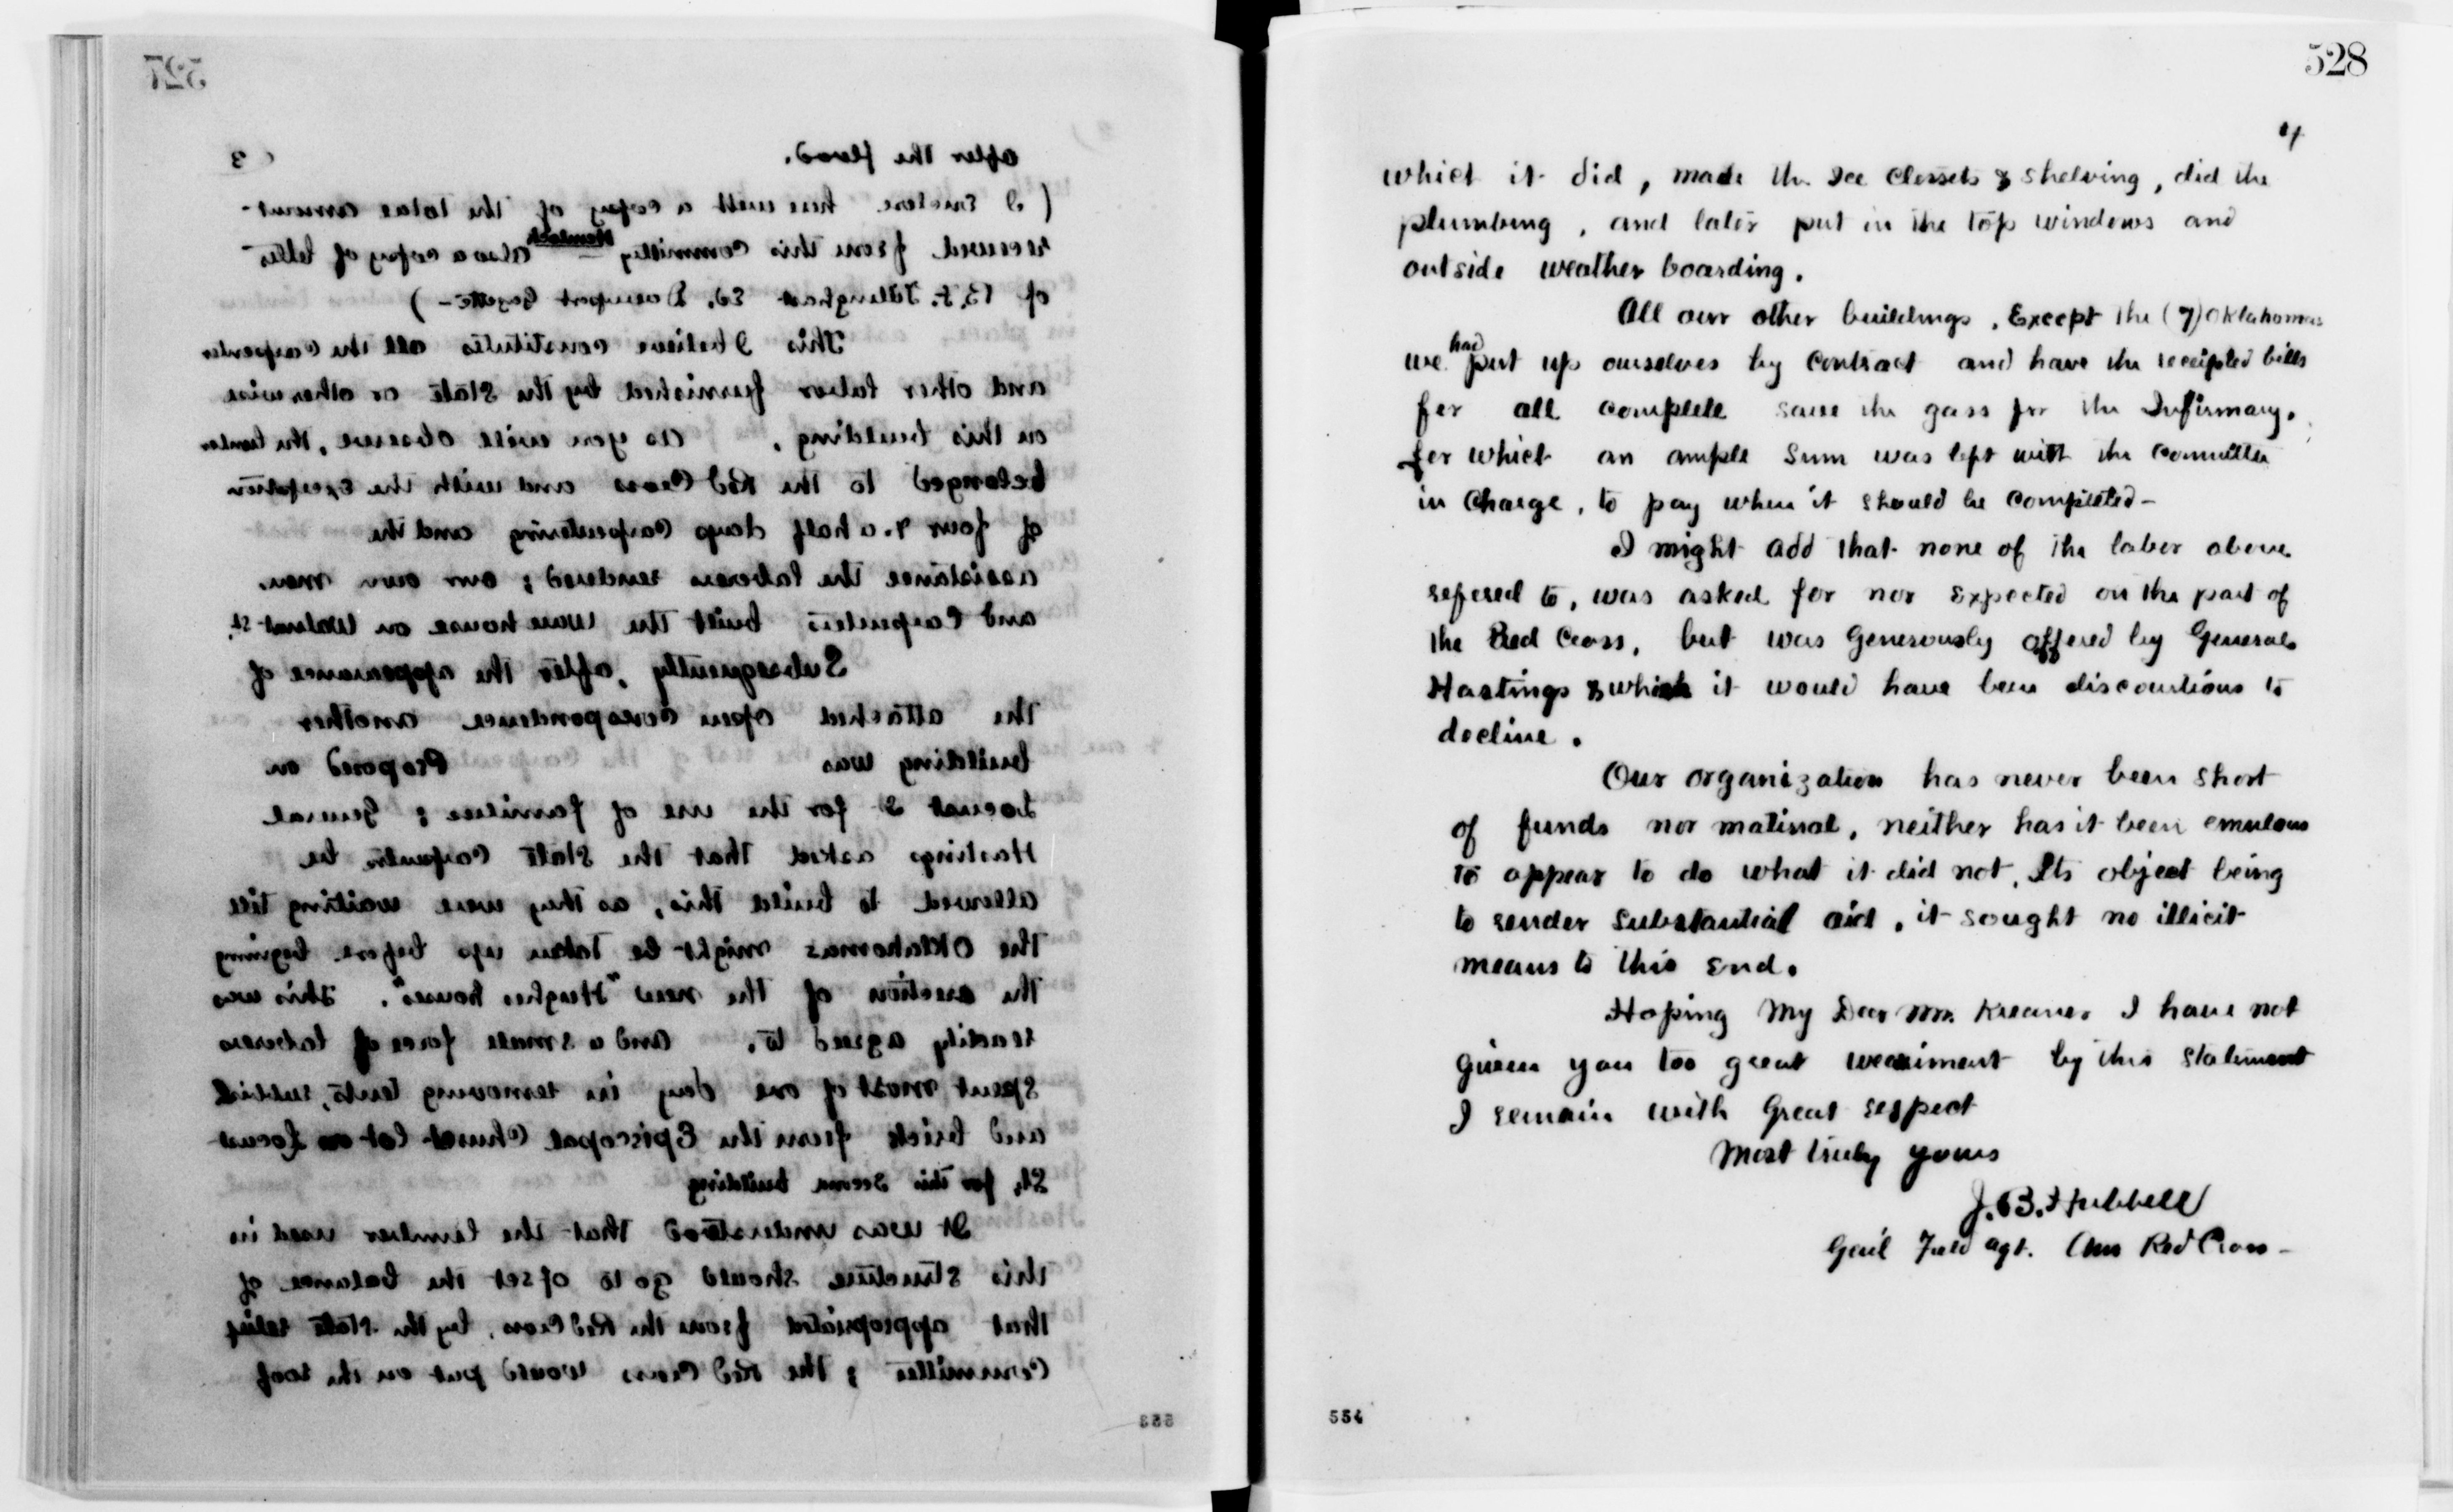 527
3
after the flood.
( I enclose here with a copy of the total amount
received from this committey Hemlock also a copy of letter
of B.F. Tillinghast Ed. Davenport Gazette - )
This I believe constitutes all the carpenter
and other labor furnished by the State or otherwise
on this building. As you will observe, the lumber
belonged to the Red Cross and with the exception
of four & a half days carpentering and the
assistance the laborers rendered; our own men
and Carpenters built the ware house on Walnut St.
Subsequently, after the appearance of
the attached open correspondence another
building was Proposed on
Locust St for the use of families; General
Hastings asked that the State Carpenters be
allowed to build this, as they were waiting till
the Oklahomas might be taken up before begining
the erection of the new "Hughes houses". This was
readily agreed to. And a small force of laborers
spent most of one day in removing tents, rubbish
and brick from the Episcopal Church lot on Locust
St. for this second building
It was understood that the lumber used in
this structure should go to ofset the balance of
that appropriated from the Red Cross, by the State relief
Committee; the Red Cross would put on the roof
553
528
4
which it did, made the Ice Clossets & shelving, did the
plumbing, and later put in the top windows and
outside weather boarding.
All our other buildings, Except the (7) Oklahomas
we had put up ourselves by Contract and have the receipted bills
for all complete save the gass for the Infirmary.
for which an ample sum was left with the committee
in Charge, to pay when it should be completed -
I might add that none of the labor above
refered to, was asked for nor Expected on the part of
the Red Cross, but was Generously offered by General
Hastings & which it would have been discourtious to
decline.
Our organization has never been short
of funds nor matirial, neither has it been emulous
to appear to do what it did not, Its object being
to render substantial aid, it sought no illicit
means to this end.
Hoping My Dear Mr. Kreamer I have not
given you too great weariment by this statement
I remain with Great respect
Most truly yours
J.B. Hubbell
Gen'l Field Agt. Am Red Cross -
554